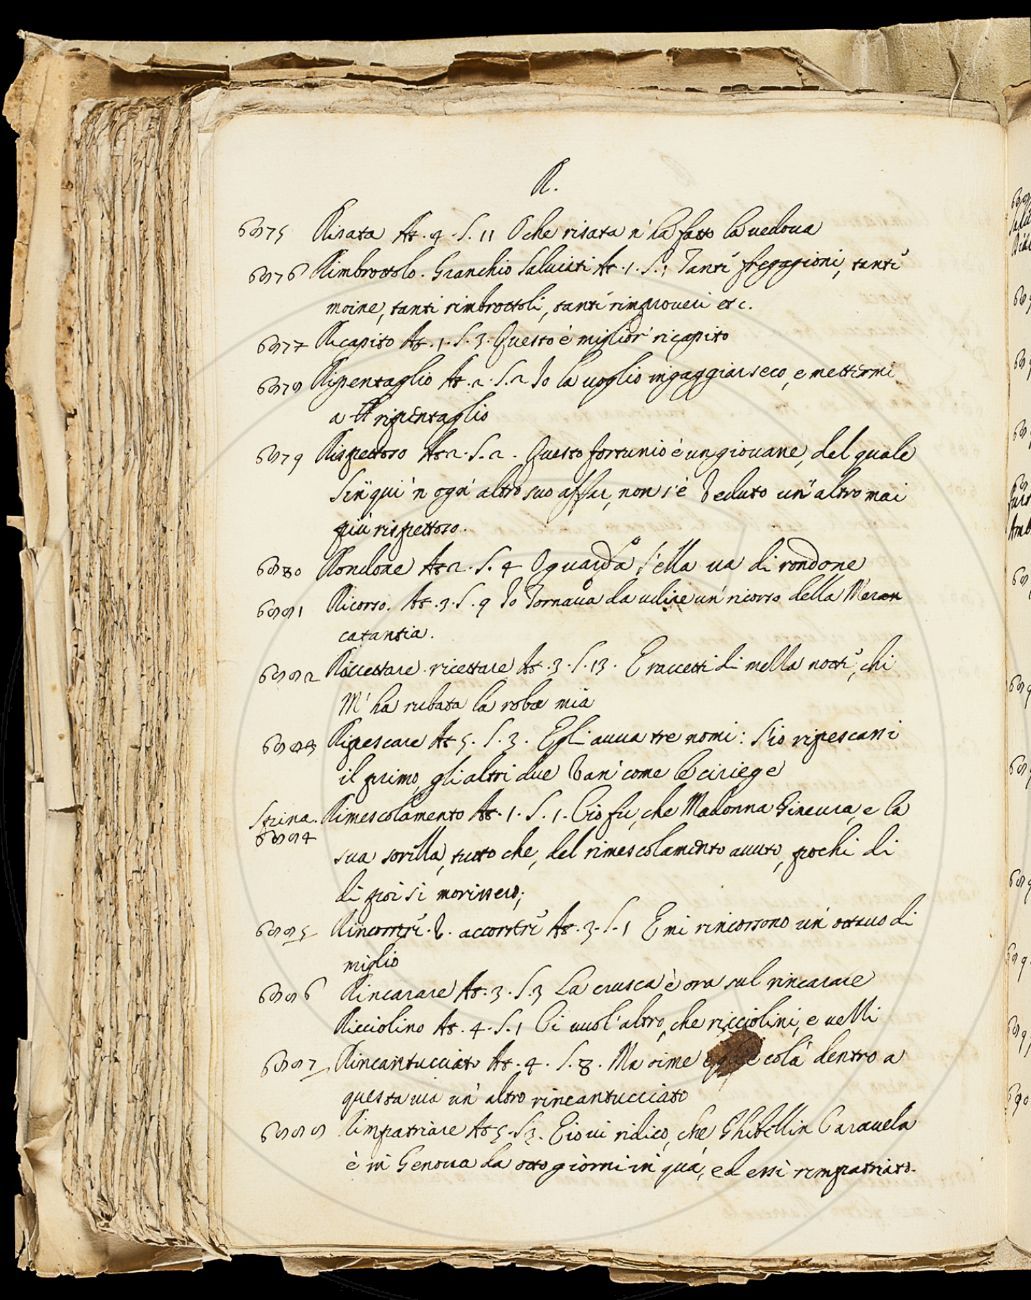 R.
6975 Risata At. 4. S. 11 O che risata n'ha fatto la vedova
6976 Rimbrottolo. Granchio Salviati At. 1. S. 1 Tanti fregagioni, tanti
moine, tanti rimbrottoli, tanti rimproveri etc.
6977 Ricapito At. 1. S. 3. Questo è miglior ricapito
6978 Ripentaglio At. 2. S. 2 Io la voglio ingaggiar seco, e mettermi
a ripentaglio
6979 Rispettoso At. 2. S. 2. Questo fortunio è un giovane, del quale
sin qui 'n ogn' altro suo affar, non s'è veduto un' altro mai
più rispettoso.
6980 Rondone At. 2. S. 4 O guarda, s'ella va di rondone
6981 Ricorso. At. 3. S. 9 Io tornava da udire un' ricorso della Mer
catantia.
6982 Raccettare. ricettare At. 3. S. 13. E raccetti di nella notti, chi
M' ha rubata la roba mia
6983 Ripescare At. 5. S. 3. Egli avea tre nomi: S'io ripescassi
il primo, gli altri due van' come le ciriege
Spina. Rimescolamento At. 1. S. 1. Ciò fu, che Madonna Ginevra, e la
6984
sua sorella, tutto che, del rimescolamento avuto, pochi di
di poi si morissero;
6985 V. At. 3. S. 1 E mi rincorsono un' ottavo di
miglio
6986 Rincarare At. 3. S. 3 La crusca è ora sul rincarare
Ricciolino At. 4. S. 1 Ci vuol' altro, che ricciolini, e velli
6987 Rincantucciato At. 4. S. 8. Ma oime colà dentro a
questa via un' altro rincantucciato
6988 Rimpatriare At. 5. S. 3. E io vi ridico, che Ghibellin Caravela
è in Genova da otto giorni in quà, ed essi rimpatriato.